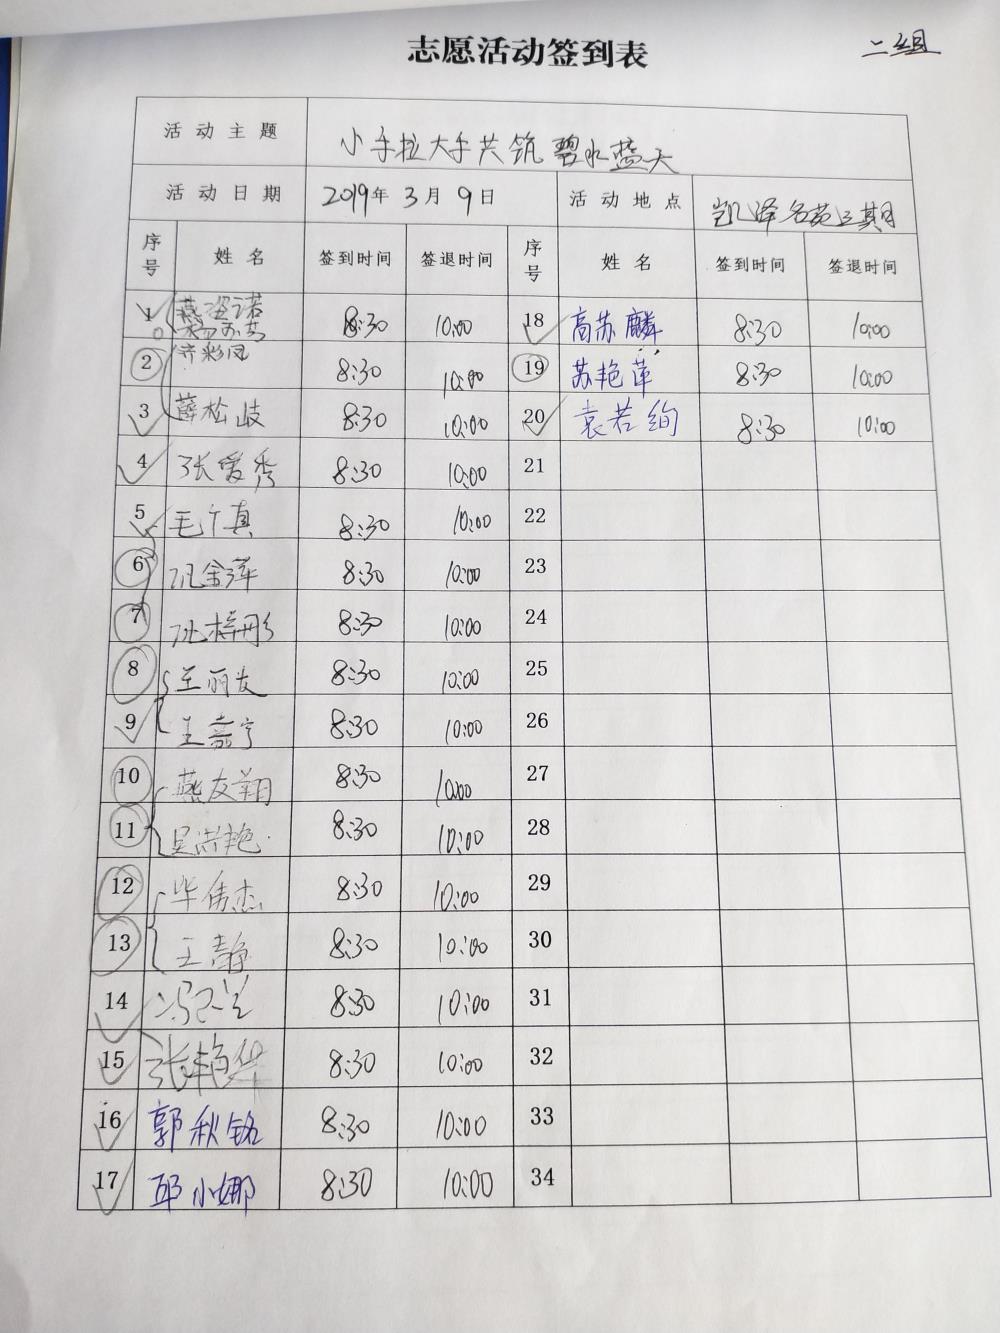 志愿活动签到表
二组
活动主题 小手拉大手共筑碧水蓝天
活动日期 2019年 3月 9日 活动地点 凯泽名苑三期
序号 姓名 签到时间 签退时间 序号 姓名 签到时间 签退时间
1 燕姿诺 8:30 10:00 18 高苏麟 8:30 10:00
2 齐彩凤 8:30 10:00 19 苏艳萍 8:30 10:00
3 薛松岐 8:30 10:00 20 袁若绚 8:30 10:00
4 张爱秀 8:30 10:00 21
5 毛 真 8:30 10:00 22
6 金萍 8:30 10:00 23
7 梓彤 8:30 10:00 24
8 王丽友 8:30 10:00 25
9 王嘉宁 8:30 10:00 26
10 燕友翔 8:30 10:00 27
11 吴洪艳 8:30 10:00 28
12 毕倩杰 8:30 10:00 29
13 王静 8:30 10:00 30
14 冯 兰 8:30 10:00 31
15 张艳华 8:30 10:00 32
16 郭秋铭 8:30 10:00 33
17 邱小娜 8:30 10:00 34